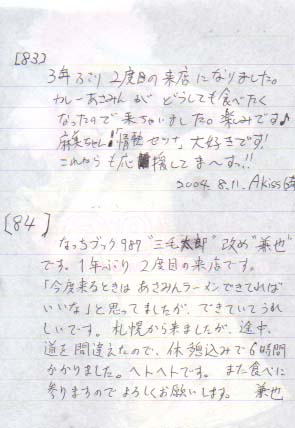 [83]
3年ぶり 2度目の来店になりました。
カレーあさみん が どうしても食べたく
なったので来ちゃいました。楽みです♪
麻美ちゃん！「情熱セツナ」大好きです!
これからも応援してま〜す。!!
2004. 8. 11. Akiss
[84]
なっちブック987 "三毛太郎" 改め"兼也"
です。1年ぶり 2度目の来店です。
「今度来るときは あさみんラーメンできてれば
いいな」と思ってましたが、できていてうれ
しいです。 札幌から来ましたが、途中、
道を間違えたので、休憩込みで6時間
かかりました。ヘトヘトです。 また食べに
参りますので よろしくお願いします。 兼也